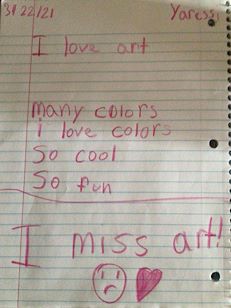 3/22/21
Yaressi
I love art
many colors
i love colors
So cool
So fun
I miss art!